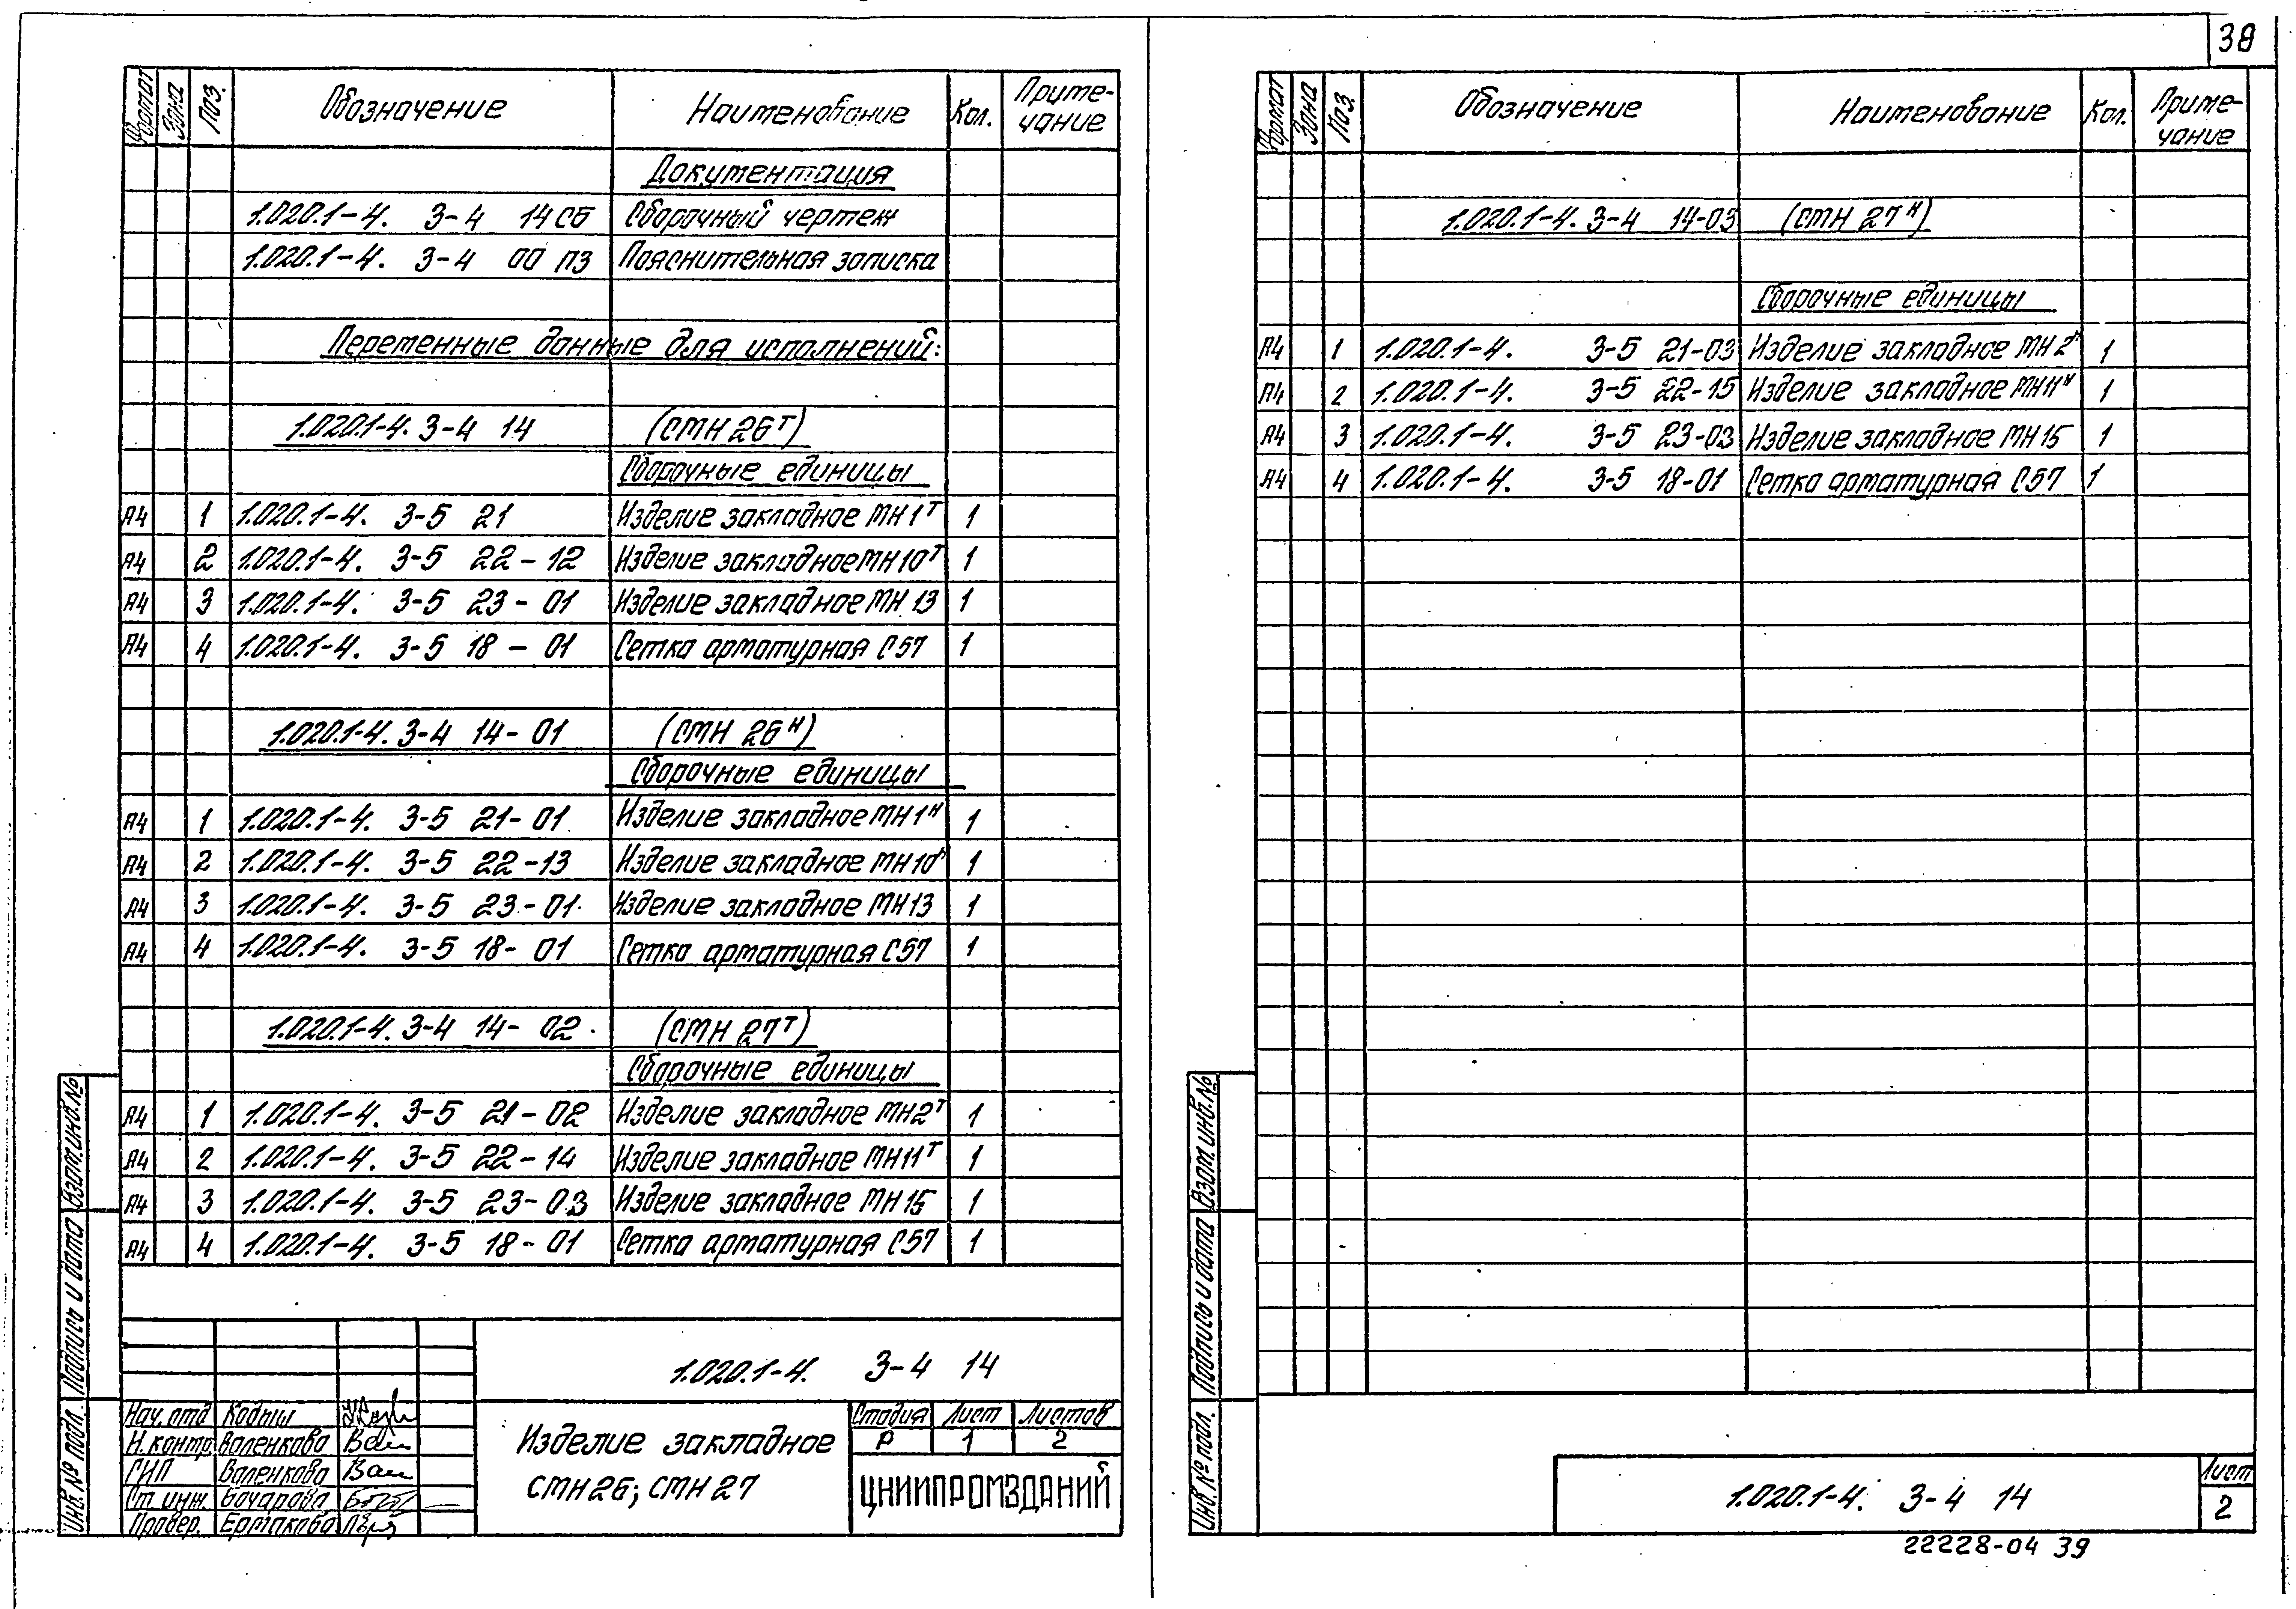 38
Формат Зона Поз. Обозначение Наименование Кол. Приме-
чание
Документация
1.020.1-4. 3-4 14СБ Сборочный чертеж
1.020.1-4. 3-4 00 ПЗ Пояснительная записка
Переменные данные для исполнений:
1.020.1-4. 3-4 14 (СМН 26ᵀ)
Сборочные единицы
А4 1 1.020.1-4. 3-5 21 Изделие закладное МН1ᵀ 1
А4 2 1.020.1-4. 3-5 22-12 Изделие закладное МН10ᵀ 1
А4 3 1.020.1-4. 3-5 23-01 Изделие закладное МН 13 1
А4 4 1.020.1-4. 3-5 18-01 Сетка арматурная С57 1
1.020.1-4. 3-4 14-01 (СМН 26ᴴ)
Сборочные единицы
А4 1 1.020.1-4. 3-5 21-01 Изделие закладное МН1ᴴ 1
А4 2 1.020.1-4. 3-5 22-13 Изделие закладное МН10ᴴ 1
А4 3 1.020.1-4. 3-5 23-01 Изделие закладное МН13 1
А4 4 1.020.1-4. 3-5 18-01 Сетка арматурная С57 1
1.020.1-4. 3-4 14-02 (СМН 27ᵀ)
Сборочные единицы
А4 1 1.020.1-4. 3-5 21-02 Изделие закладное МН2ᵀ 1
А4 2 1.020.1-4. 3-5 22-14 Изделие закладное МН11ᵀ 1
А4 3 1.020.1-4. 3-5 23-03 Изделие закладное МН15 1
А4 4 1.020.1-4. 3-5 18-01 Сетка арматурная С57 1
Взам.инв.№
Подпись и дата
Инв.№ подл.
1.020.1-4. 3-4 14
Нач.отд Кодыш
Н.контр. Валенкова
ГИП Валенкова
Ст.инж. Бочарова
Провер. Ермакова
Изделие закладное
СМН26; СМН27
Стадия Лист Листов
Р 1 2
ЦНИИПРОМЗДАНИЙ
Формат Зона Поз. Обозначение Наименование Кол. Приме-
чание
1.020.1-4. 3-4 14-03 (СМН 27ᴴ)
Сборочные единицы
А4 1 1.020.1-4. 3-5 21-03 Изделие закладное МН2ᴴ 1
А4 2 1.020.1-4. 3-5 22-15 Изделие закладное МН11ᴴ 1
А4 3 1.020.1-4. 3-5 23-03 Изделие закладное МН15 1
А4 4 1.020.1-4. 3-5 18-01 Сетка арматурная С57 1
Взам.инв.№
Подпись и дата
Инв.№ подл.
1.020.1-4. 3-4 14
Лист
2
22228-04 39